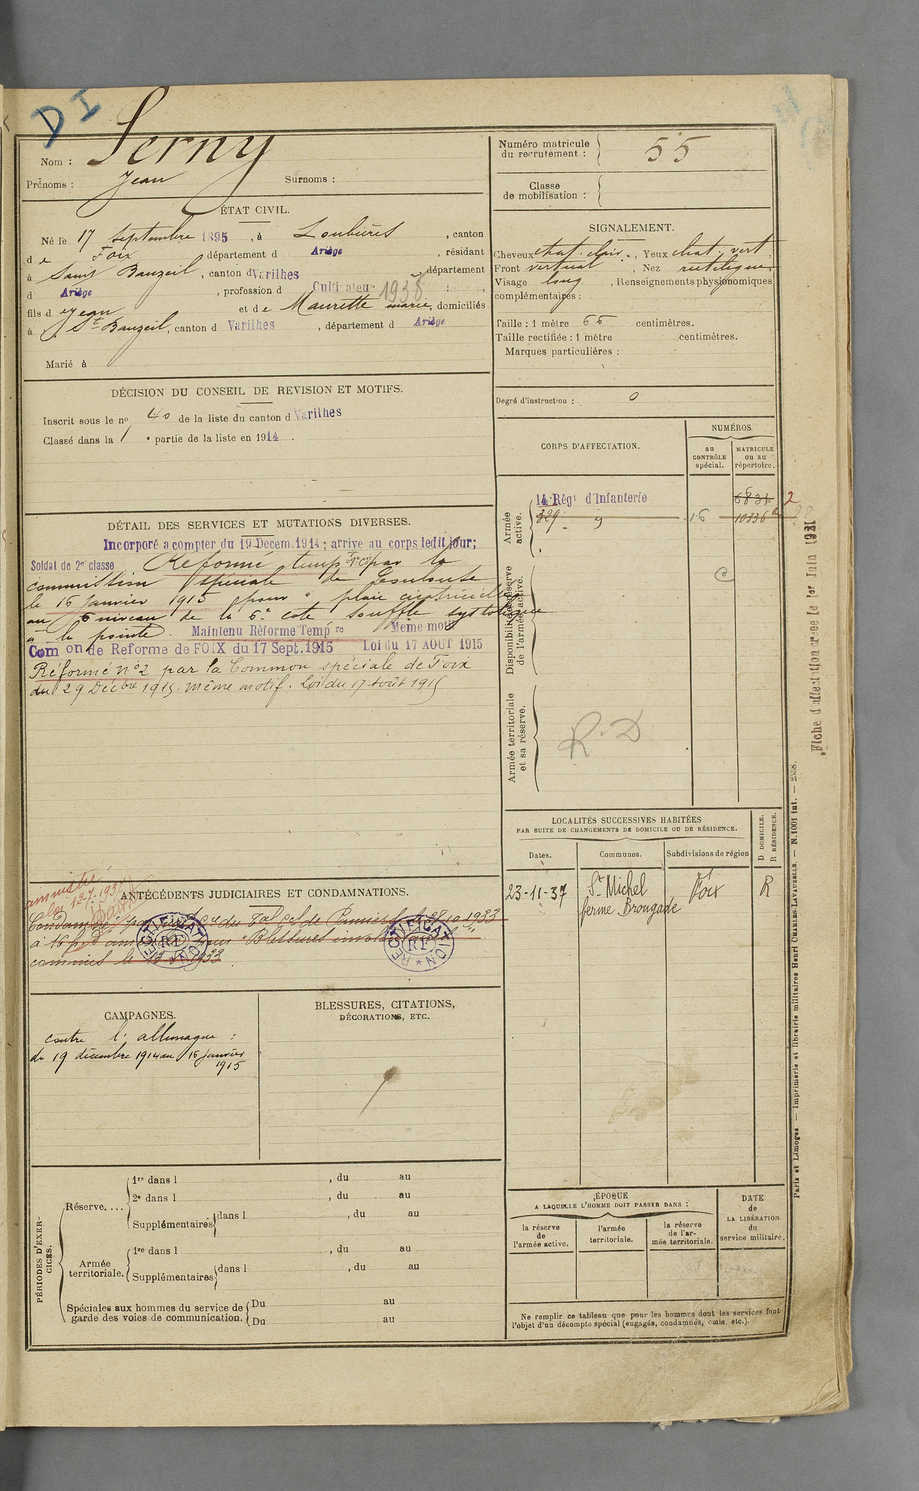 DI
Nom : Serny
Prénoms : Jean Surnoms :
Numéro matricule du recrutement : 55
Classe de mobilisation :
ÉTAT CIVIL.
Né le 17 septembre 1895, à Loubières, canton
de Foix département d Ariège, résidant
à Saint Bauzeil, canton d Varilhes département
d Ariège, profession d Cultivateur 1938
fils d e Jean et de Maurette marie, domiciliés
à St Bauzeil, canton d Varilhes, département d Ariège
Marié à
SIGNALEMENT.
Cheveux chat. clair., Yeux chat. vert
Front vertical, Nez rectiligne
Visage long, Renseignements physionomiques
complémentaires :
Taille : 1 mètre 65 centimètres.
Taille rectifiée : 1 mètre centimètres.
Marques particulières :
Degré d'instruction : 0
DÉCISION DU CONSEIL DE REVISION ET MOTIFS.
Inscrit sous le no 40 de la liste du canton d Varilhes
Classé dans la 1e partie de la liste en 1914.
CORPS D'AFFECTATION.
NUMÉROS
AU CONTRÔLE spécial.
MATRICULE OU AU répertoire.
Armée active.
14 Régt d'Infanterie 6831 2
329 " 9 16 10336
Disponibilité et réserve de l'armée active.
Armée territoriale et sa réserve.
R.D
DÉTAIL DES SERVICES ET MUTATIONS DIVERSES.
Incorporé a compter du 19 Decem. 1914; arrive au corps ledit jour;
Soldat de 2e classe Réformé temp re par la
commission spéciale de Toulouse
le 16 janvier 1915 pour " plaie cicatricielle
au niveau de la 6e cote souffle systolique
à la pointe. Maintenu Réforme Temp re Meme motif
Com on de Reforme de FOIX du 17 Sept. 1915 Loi du 17 AOUT 1915
Réformé no 2 par la Common spéciale de Foix
du 29 Décbre 1915. même motif. Loi du 17 Août 1915
Fiche d'affectation créée le 1er Juin 1931
LOCALITÉS SUCCESSIVES HABITÉES
PAR SUITE DE CHANGEMENTS DE DOMICILE OU DE RÉSIDENCE.
Dates. Communes. Subdivisions de région D DOMICILE. R RÉSIDENCE.
23-11-37 St Michel Foix R
ferme Brougade
amnistié
loi 12.7.1937
ANTÉCÉDENTS JUDICIAIRES ET CONDAMNATIONS.
Condamné par du Tal de Pamiers le 28.10.1933
à 16 f d'am pour "Blessures invol
commises le 1933
RECTIFICATION RF
RECTIFICATION RF
CAMPAGNES.
contre l'allemagne :
du 19 décembre 1914 au 16 janvier
1915
BLESSURES, CITATIONS,
DÉCORATIONS, ETC.
PÉRIODES D'EXERCICES.
Réserve....
1re dans l , du au
2e dans l , du au
Supplémentaires dans l , du au
Armée territoriale.
1re dans l , du au
Supplémentaires dans l , du au
Spéciales aux hommes du service de garde des voies de communication.
Du au
Du au
ÉPOQUE
A LAQUELLE L'HOMME DOIT PASSER DANS :
la réserve de l'armée active.
l'armée territoriale.
la réserve de l'armée territoriale.
DATE de LA LIBÉRATION du service militaire.
Ne remplir ce tableau que pour les hommes dont les services font
l'objet d'un décompte spécial (engagés, condamnés, omis, etc.).
Paris et Limoges. — Imprimerie et librairie militaires Henri CHARLES-LAVAUZELLE. — N. 1001 int.